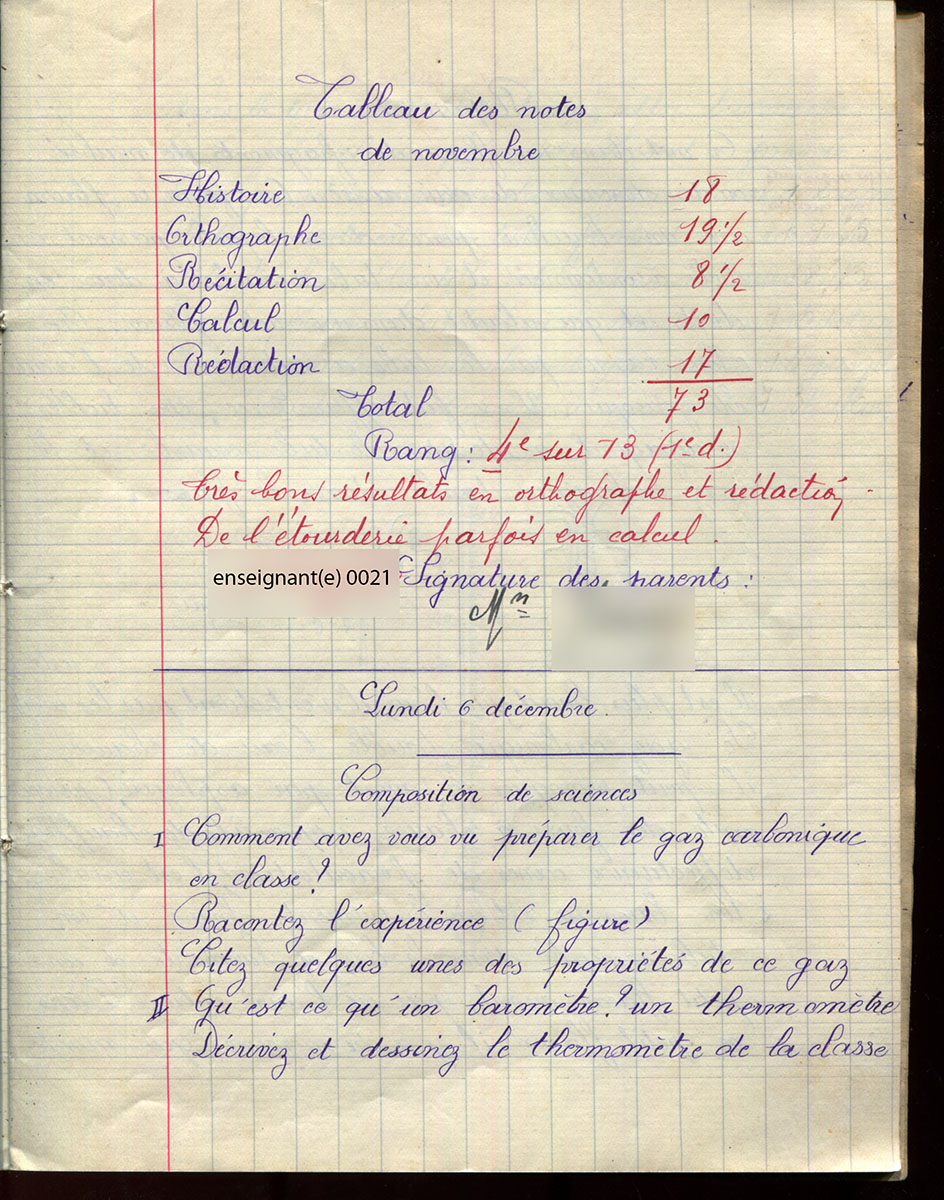 Tableau des notes
de novembre
Histoire 18
Orthographe 19 1/2
Récitation 8 1/2
Calcul 10
Rédaction 17
Total 73
Rang : 4e sur 73 (1e d.)
très bons résultats en orthographe et rédaction.
De l'étourderie parfois en calcul.
enseignant(e) 0021 Signature des parents :
Mm
Lundi 6 décembre.
Composition de sciences
I Comment avez vous vu préparer le gaz carbonique
en classe ?
Racontez l'expérience (figure)
Citez quelques unes des propriétés de ce gaz
II Qu'est ce qu'un baromètre ? un thermomètre
Décrivez et dessinez le thermomètre de la classe